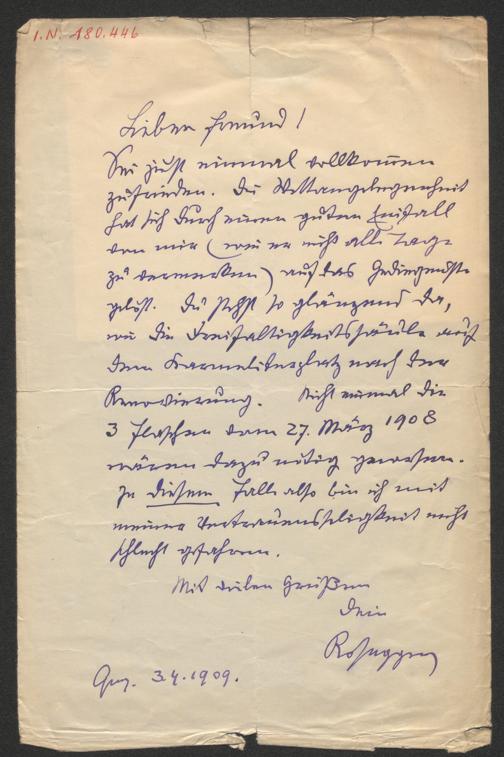 I.N. 180.446
Lieber Freund!
Sei just einmal vollkommen
zufrieden. Die Wettangelegenheit
hat sich durch einen guten Einfall
von mir (wie er nicht alle Tage
zu vermerken) auf das Gediegenste
gelöst. Du stehst so glänzend da,
wie die Dreifaltigkeitssäule auf
dem Karmeliterplatz nach der
Renovierung. Nicht einmal die
3 Flaschen vom 27. März 1908
wären dazu nötig gewesen.
In diesem Falle also bin ich mit
meiner Vertrauensseligkeit nicht
schlecht gefahren.
Mit vielen Grüßen
Dein
Rosegger
Graz. 3.4.1909.